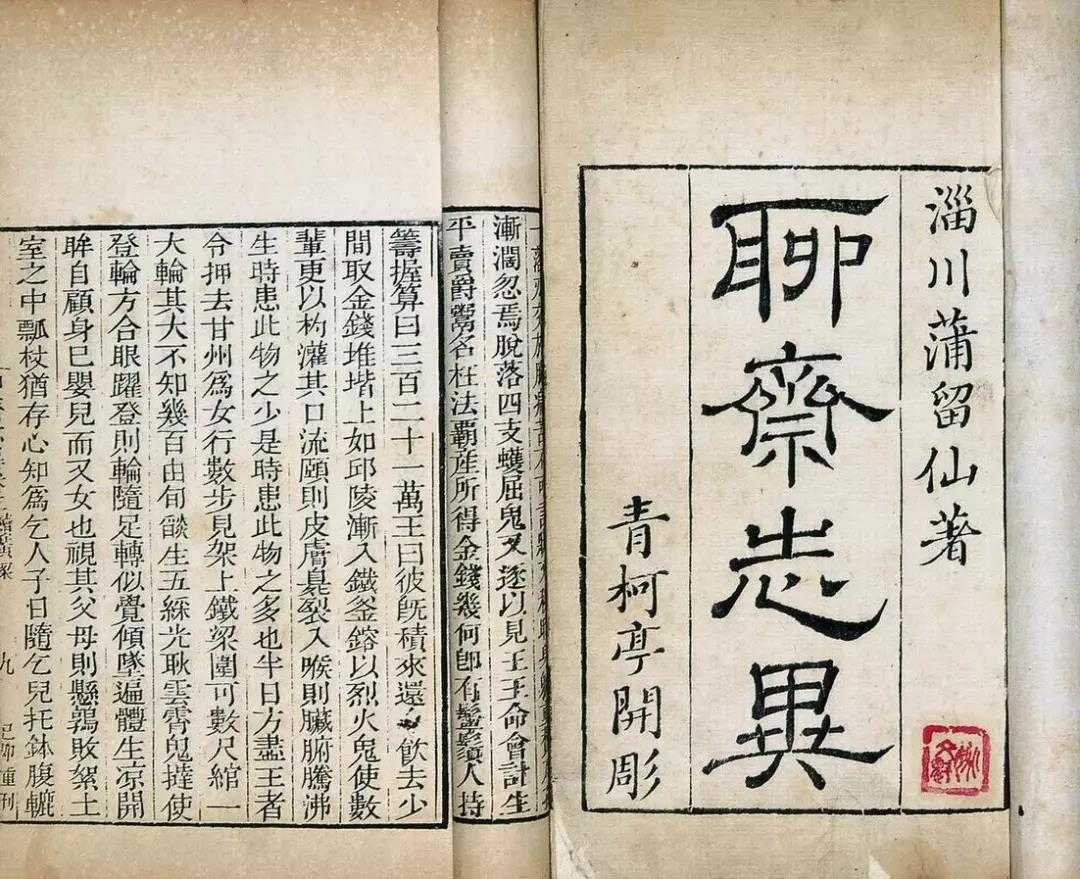 淄川蒲留仙著
聊齋志異
青柯亭開彫
漸濶忽焉脫落四支蠖屈鬼又逐以見王王命會計生
平賣爵鬻名枉法霸産所得金錢幾何卽有鬡鬚人持
籌握算曰三百二十一萬王曰彼旣積來還令飲去少
間取金錢堆堦上如邱陵漸入鐵釜鎔以烈火鬼使數
輩更以杓灌其口流頤則皮膚臭裂入喉則臟腑騰沸
生時患此物之少是時患此物之多也半日方盡王者
令押去甘州爲女行數步見架上鐵梁圍可數尺綰一
大輪其大不知幾百由旬燄生五綵光耿雲霄鬼撻使
登輪方合眼躍登則輪隨足轉似覺傾墜遍體生凉開
眸自顧身已嬰兒而又女也視其父母則懸鶉敗絮土
室之中瓢杖猶存心知爲乞人子日隨乞兒托鉢腹轆
九